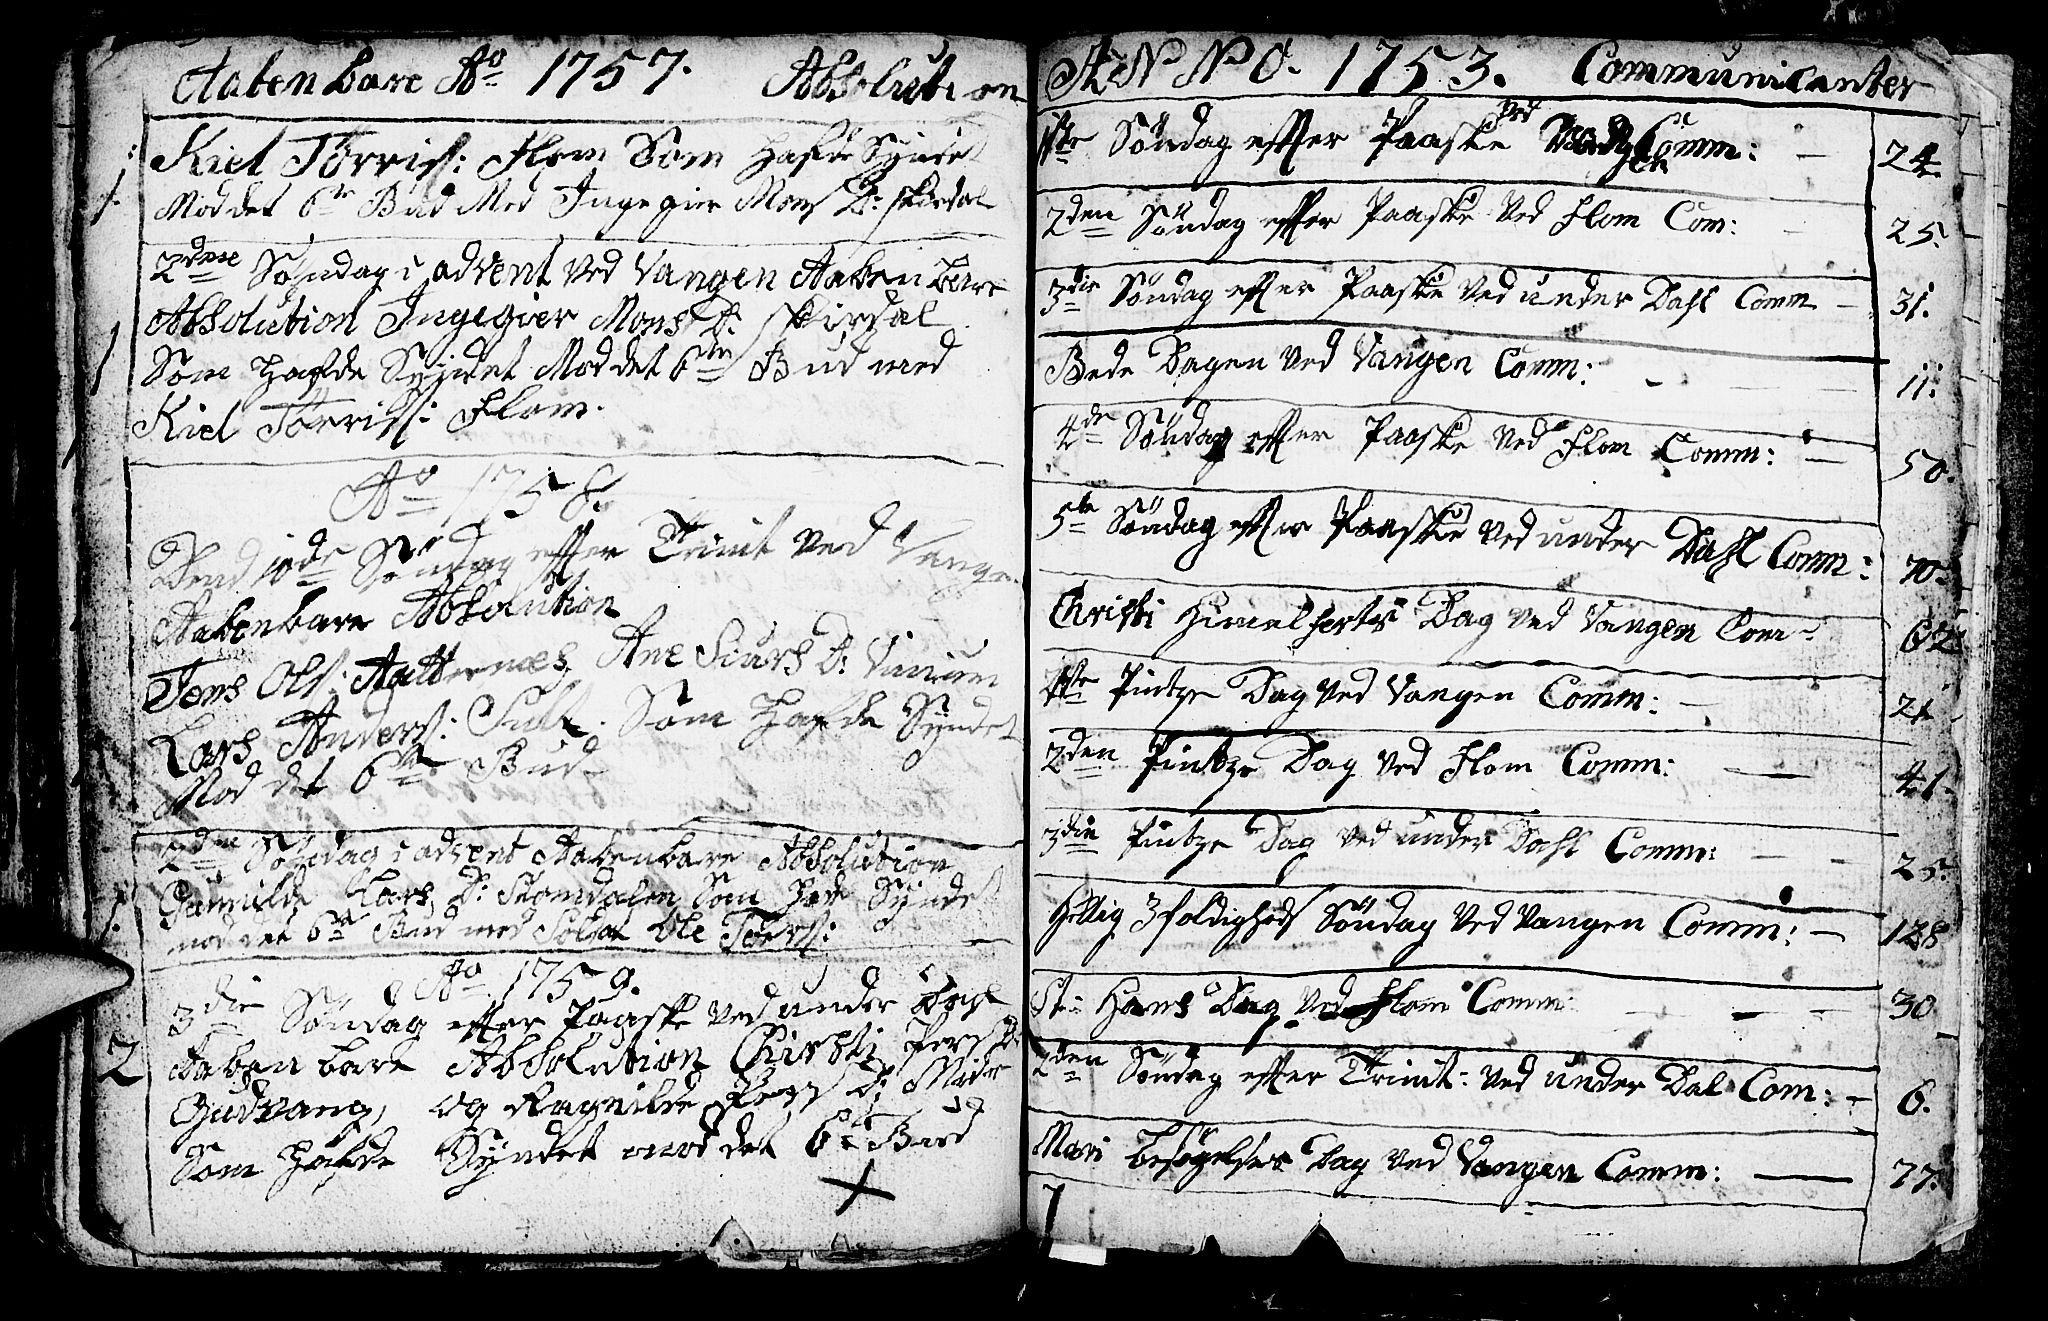 Aabenbare Ao 1757. Absolution
Kiel Torriss: Flom Som Hafde Syndet
1. Mod det 6te Bud Med Ingegier Mons D: Skirdal
2den Søndag i advent Ved Vangen Aabenbare
Absolution Ingegier Mons D: Skirdal
1 Som Hafde Syndet Mod det 6te Bud med
Kiel Torriss: Flom.
Ao 1758.
Dend 10de Søndag effter Trinit Ved Vange
Aabenbare Absolution
Jens Ols: Ane Siurs D:
Lars Anders: Som Hafde Syndet
Mod det 6te Bud
2den Søndag i advent Aabenbare Absolution
Gunnilde Lars D: Som Syndet
1. mod det 6te Bud med Ole
Ao 1759.
3die Søndag effter Paaske Ved under Dahl
2 Aabenbare Absolution Christi Pers D:
Gudvang, og Ragnilde Pers D:
Som Hafde Syndet mod det 6te Bud
ANNO. 1753. Communicanter
1ste Søndag effter Paaske Ved Vangen Comm: 24.
2den Søndag effter Paaske Ved Flom Com: 25.
3die Søndag effter Paaske Ved under Dahl Comm 31.
Bede Dagen Ved Vangen Comm: 11.
4de Søndag effter Paaske Ved Flom Comm: 50.
5te Søndag effter Paaske Ved under Dahl Comm: 70.
Christi Himelferts Dag Ved Vangen Com: 62
1ste Pintze Dag Ved Vangen Comm: 21
2den Pintze Dag Ved Flom Comm: 41.
3die Pintze Dag Ved under Dahl Comm: 25.
Hellig 3foldigheds Søndag Ved Vangen Comm: 128
St: Hans Dag Ved Flom Comm: 30
2den Søndag effter Trinit: Ved under Dal Com: 6.
Mari Besøgelses Dag Ved Vangen Comm: 77.